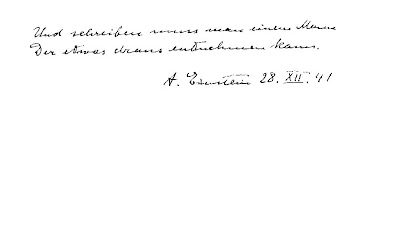 Und schreiben muss man einem Manne
Der etwas draus entnehmen kann.
A. Einstein 28. XII. 41